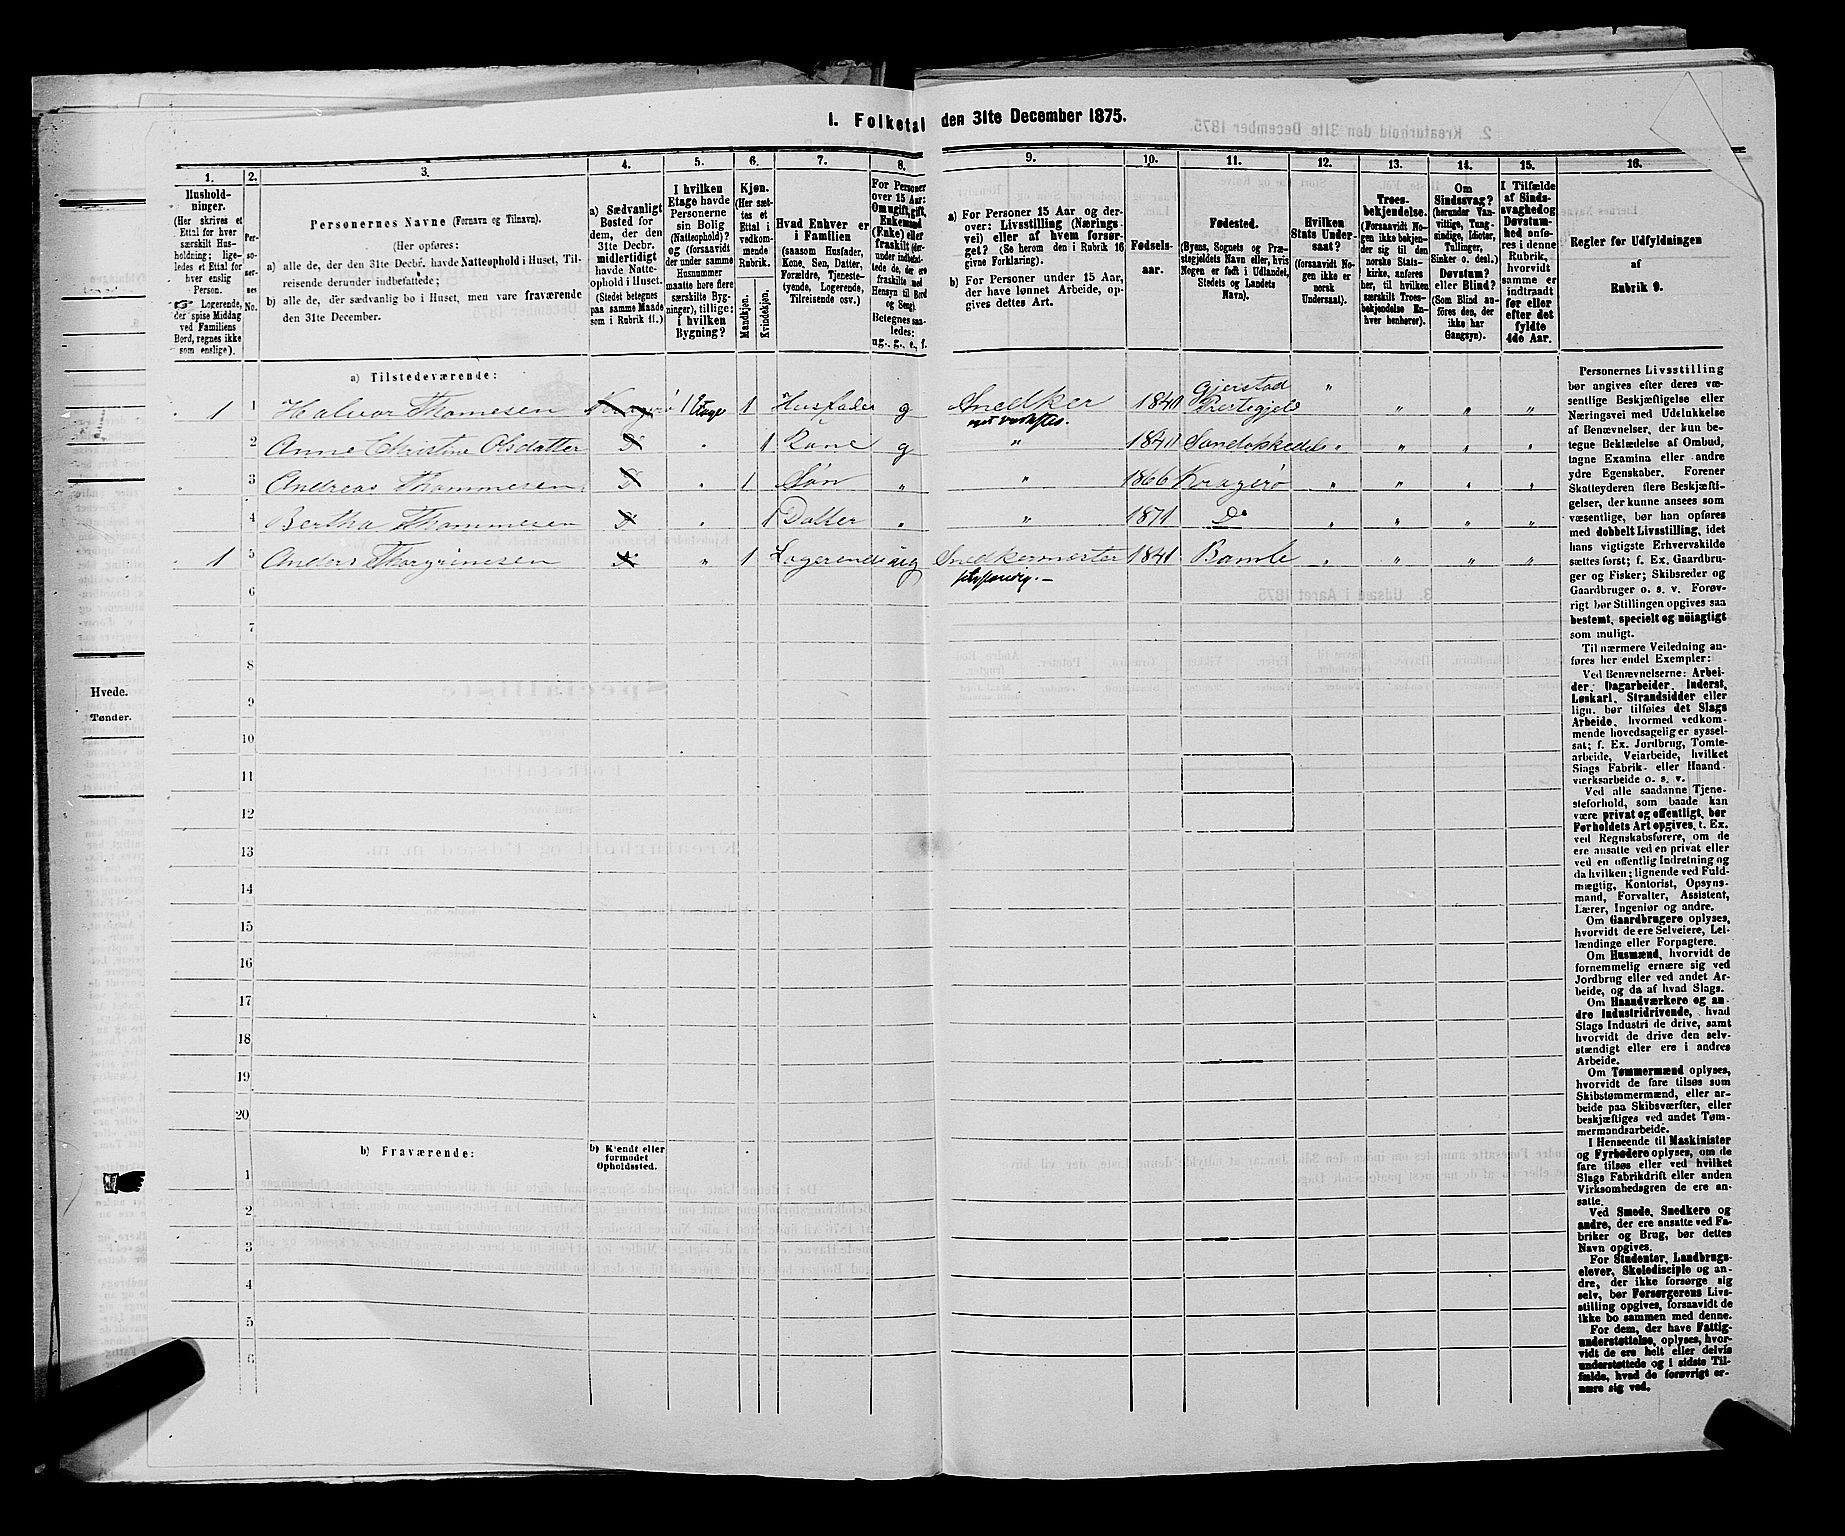 1. Folketal den 31te December 1875.
1.
2.
3.
4.
5.
6.
7.
8.
9.
10.
11.
12.
13.
14.
15.
16.
Hushold-
ninger.
(Her skrives et
Ettal for hver
særskilt Hus-
holdning; lige-
ledes et Ettal for
hver enslig
Person.
☞ Logerende,
der spise Middag
ved Familiens
Bord, regnes ikke
som enslige).
Per-
so-
ner-
nes
No.
Personernes Navne (Fornavn og Tilnavn).
(Her opføres:
a) alle de, der den 31te Decbr. havde Natteophold i Huset, Til-
reisende derunder indbefattede;
b) alle de, der sædvanlig bo i Huset, men vare fraværende
den 31te December.
a) Sædvanligt
Bosted for
dem, der den
31te Decbr.
midlertidigt
havde Natte-
ophold i Huset.
(Stedet betegnes
paa samme Maade
som i Rubrik 11.)
I hvilken
Etage havde
Personerne
sin Bolig
(Natteophold)?
og (forsaavidt
der under samme
Husnummer
maatte høre flere
særskilte Byg-
ninger), tillige:
i hvilken
Bygning?
Kjøn.
(Her sæt-
tes et
Ettal i
vedkom-
mende
Rubrik.
Mandkjøn.
Kvindekjøn.
Hvad Enhver er
i Familien
(saasom Husfader,
Kone, Søn, Datter,
Forældre, Tjeneste-
tyende, Logerende,
Tilreisende osv.)
For Personer
over 15 Aar:
Om ugift, gift,
Enkemand
(Enke) eller
fraskilt (der-
under indbefat-
tede de, der ere
fraskilte med
Hensyn til Bord
og Seng).
Betegnes saa-
ledes:
ug., g., e., f.
a) For Personer 15 Aar og der-
over: Livsstilling (Nærings-
vei) eller af hvem forsør-
get? (Se herom den i Rubrik 16
givne Forklaring).
b) For Personer under 15 Aar,
der have lønnet Arbeide, op-
gives dettes Art.
Fødsels-
aar.
Fødested.
(Byens, Sognets og Præ-
stegjeldets Navn eller, hvis
Nogen er født i Udlandet,
Stedets og Landets
Navn).
Hvilken
Stats Under-
saat?
(forsaavidt No-
gen ikke er
norsk
Undersaat).
Troes-
bekjendelse.
(Forsaavidt No-
gen ikke bekjen-
der sig til den
norske Stats-
kirke, anføres
her, til hvilken
særskilt Troes-
bekjendelse En-
hver henhører).
Om
Sindssvag?
(herunder Van-
vittige, Tung-
sindige, Idioter,
Tullinger,
Sinker o. desl.)
Døvstum?
eller Blind?
(Som Blind an-
føres den, der
ikke har
Gangsyn).
I Tilfælde
af Sinds-
svaghed og
Døvstum-
hed anfø-
res i denne
Rubrik,
hvorvidt
samme er
indtraadt
før eller
efter det
fyldte
4de Aar.
Regler for Udfyldningen
af
Rubrik 9.
a) Tilstedeværende:
1 1 Halvor Thomesen Kragerø 1 Etage 1 Husfader g Snedker 1840 Gjerstad Prestegjeld " " " "
2 Anne Christine Olsdatter D " 1 Kone g " 1840 " " " "
3 Andreas Thommesen D " 1 Søn " " 1866 Kragerø " " " "
4 Bertha Thommesen D " 1 Datter " " 1871 Do " " " "
1 5 Anders Thorgrimsen D " 1 Logerende ug Snedkermester 1841 Bamle " " " "
6
7
8
9
10
11
12
13
14
15
16
17
18
19
20
b) Fraværende:
b) Kjendt eller
formodet
Opholdssted.
1
2
3
4
5
6
Personernes Livsstilling
bør angives efter deres væ-
sentlige Beskjæftigelse eller
Næringsvei med Udelukkelse
af Benævnelser, der kun be-
tegne Beklædelse af Ombud,
tagne Examina eller andre
ydre Egenskaber. Forener
Skatteyderen flere Beskjæfti-
gelser, der kunne ansees som
væsentlige, bør han opføres
med dobbelt Livsstilling, idet
hans vigtigste Erhvervskilde
sættes først; f. Ex. Gaardbru-
ger og Fisker; Skibsreder og
Gaardbruger o. s. v. Forøv-
rigt bør Stillingen opgives saa
bestemt, specielt og nøiagtigt
som muligt.
Til nærmere Veiledning an-
føres her endel Exempler:
Ved Benævnelserne: Arbei-
der, Dagarbeider, Inderst,
Løskarl, Strandsidder eller
lign. bør tilføies det Slags
Arbeide, hvormed vedkom-
mende hovedsagelig er syssel-
sat; f. Ex. Jordbrug, Tomte-
arbeide, Veiarbeide, hvilket
Slags Fabrik- eller Haand-
værksarbeide o. s. v.
Ved alle saadanne Tjene-
steforhold, som baade kan
være privat og offentligt, bør
Forholdets Art opgives, f. Ex.
ved Regnskabsførere, om de
ere ansatte ved en privat eller
ved en offentlig Indretning og
da hvilken; lignende ved Fuld-
mægtig, Kontorist, Opsyns-
mand, Forvalter, Assistent,
Lærer, Ingeniør og andre.
Om Gaardbrugere oplyses,
hvorvidt de ere Selveiere, Lei-
lændinge eller Forpagtere.
Om Husmænd, hvorvidt de
fornemmelig ernære sig ved
Jordbrug eller ved andet Ar-
beide, og da af hvad Slags.
Om Haandværkere og an-
dre Industridrivende, hvad
Slags Industri de drive, samt
hvorvidt de drive den selv-
stændigt eller ere i andres
Arbeide.
Om Tømmermænd oplyses,
hvorvidt de fare tilsøs som
Skibstømmermænd, eller ar-
beide paa Skibsværfter, eller
beskjæftiges ved andet Tøm-
mermandsarbeide.
I Henseende til Maskinister
og Fyrbødere oplyses, om de
fare tilsøs eller ved hvilket
Slags Fabrikdrift eller anden
Virksomhedsgren de ere an-
satte.
Ved Smede, Snedkere og
andre, der ere ansatte ved Fa-
briker og Brug, bør dettes
Navn opgives.
For Studenter, Landbrugs-
elever, Skoledisciple og an-
dre, der ikke forsørge sig
selv, bør Forsørgerens Livs-
stilling opgives, forsaavidt de
ikke bo sammen med denne.
For dem, der have Fattig-
understøttelse, oplyses, hvor-
vidt de ere helt eller delvis
understøttede og i sidste Til-
fælde, hvad de forøvrigt er-
nære sig ved.
Hvede.
Tønder.